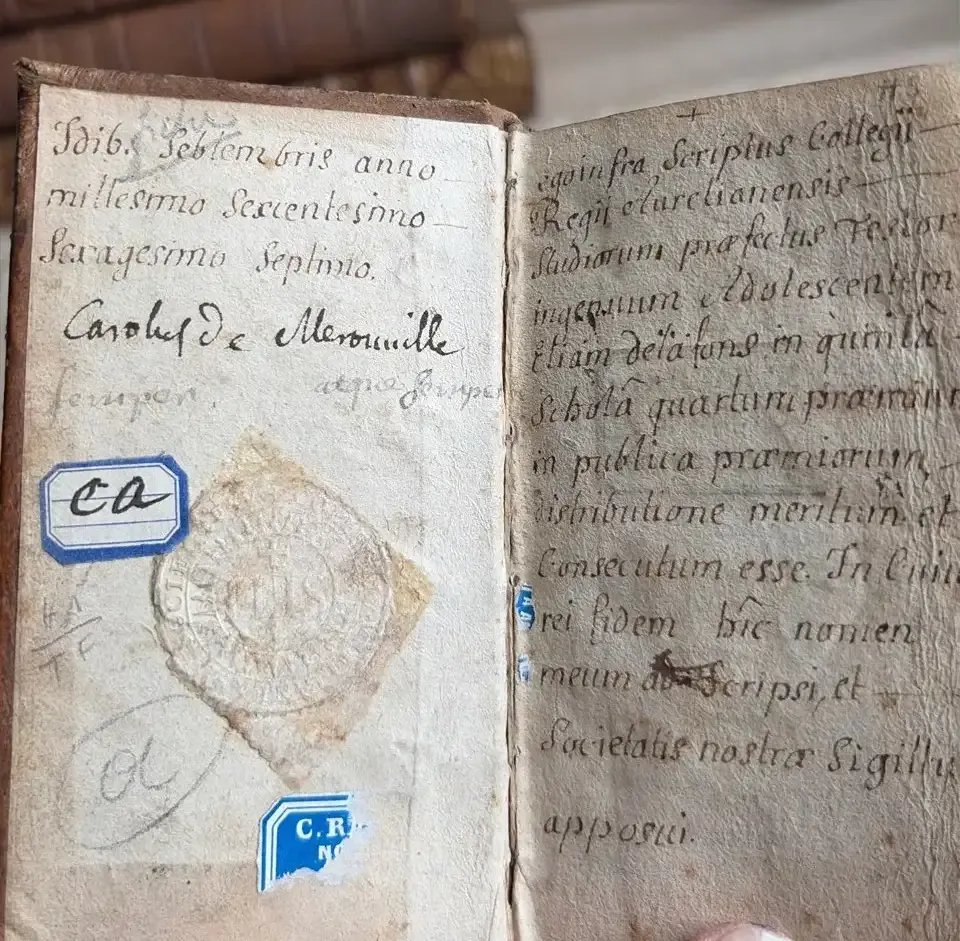 Idib. Septembris anno
millesimo Sexcentesimo
Sexagesimo Septimo.
Carolus De Merouville
semper. atque semper
ca
C.R.
ego infra Scriptus Collegii
Regii Aurelianensis
Studiorum præfectus Testor
ingenuum Adolescentem
in quinta
Scholâ quartum præmium
in publica præmiorum
distributione meritum et
Consecutum esse. In Cuius
rei fidem hîc nomen
meum Scripsi, et
Societatis nostræ Sigillu
apposui.